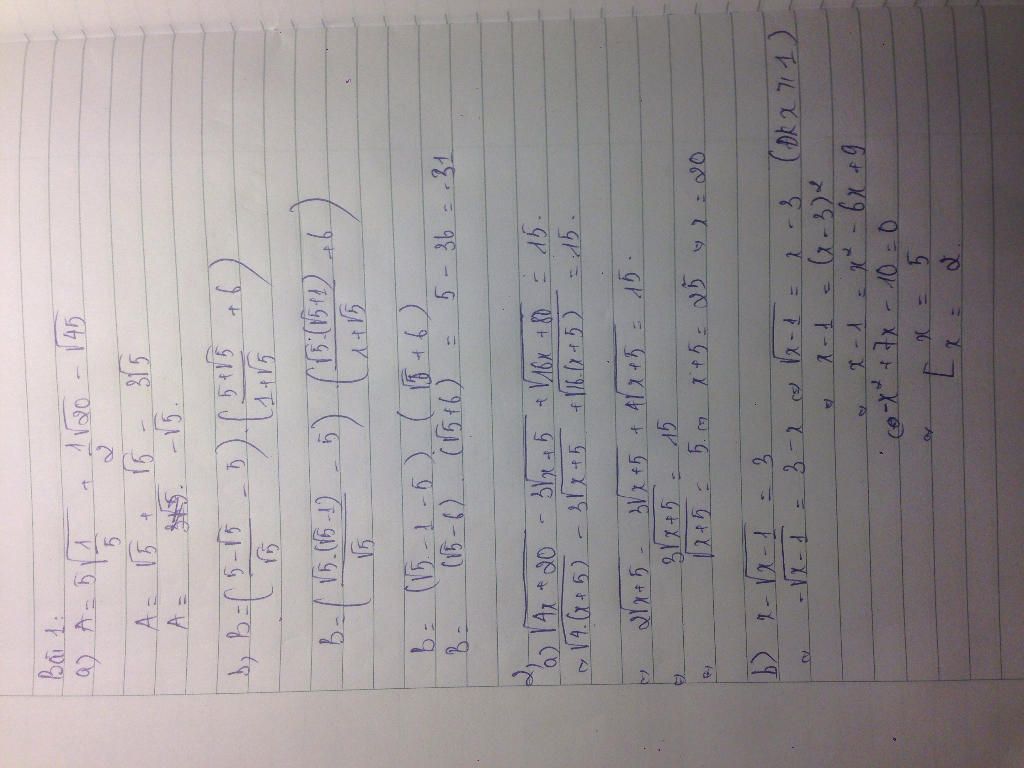 Bài 1:
a) A = 5√(1/5) + 1/2 √20 - √45
A = √5 + √5 - 3√5
A = -√5.
b) B = ((5-√5)/√5 - 5) ((5+√5)/(1+√5) + 6)
B = (√5.(√5-1)/√5 - 5) (√5.(√5+1)/(1+√5) + 6)
B = (√5 - 1 - 5) (√5 + 6)
B = (√5 - 6) (√5 + 6) = 5 - 36 = -31
2)
a) √(4x+20) - 3√(x+5) + √(16x+80) = 15.
⇔ √(4.(x+5)) - 3√(x+5) + √(16(x+5)) = 15.
⇔ 2√(x+5) - 3√(x+5) + 4√(x+5) = 15.
⇔ 3√(x+5) = 15
⇔ √(x+5) = 5 ⇔ x+5 = 25 ⇔ x = 20
b) x - √(x-1) = 3
⇔ -√(x-1) = 3 - x ⇔ √(x-1) = x - 3 (ĐK x ≥ 1)
⇔ x - 1 = (x-3)²
⇔ x - 1 = x² - 6x + 9
⇔ -x² + 7x - 10 = 0
⇔ [ x = 5
x = 2.